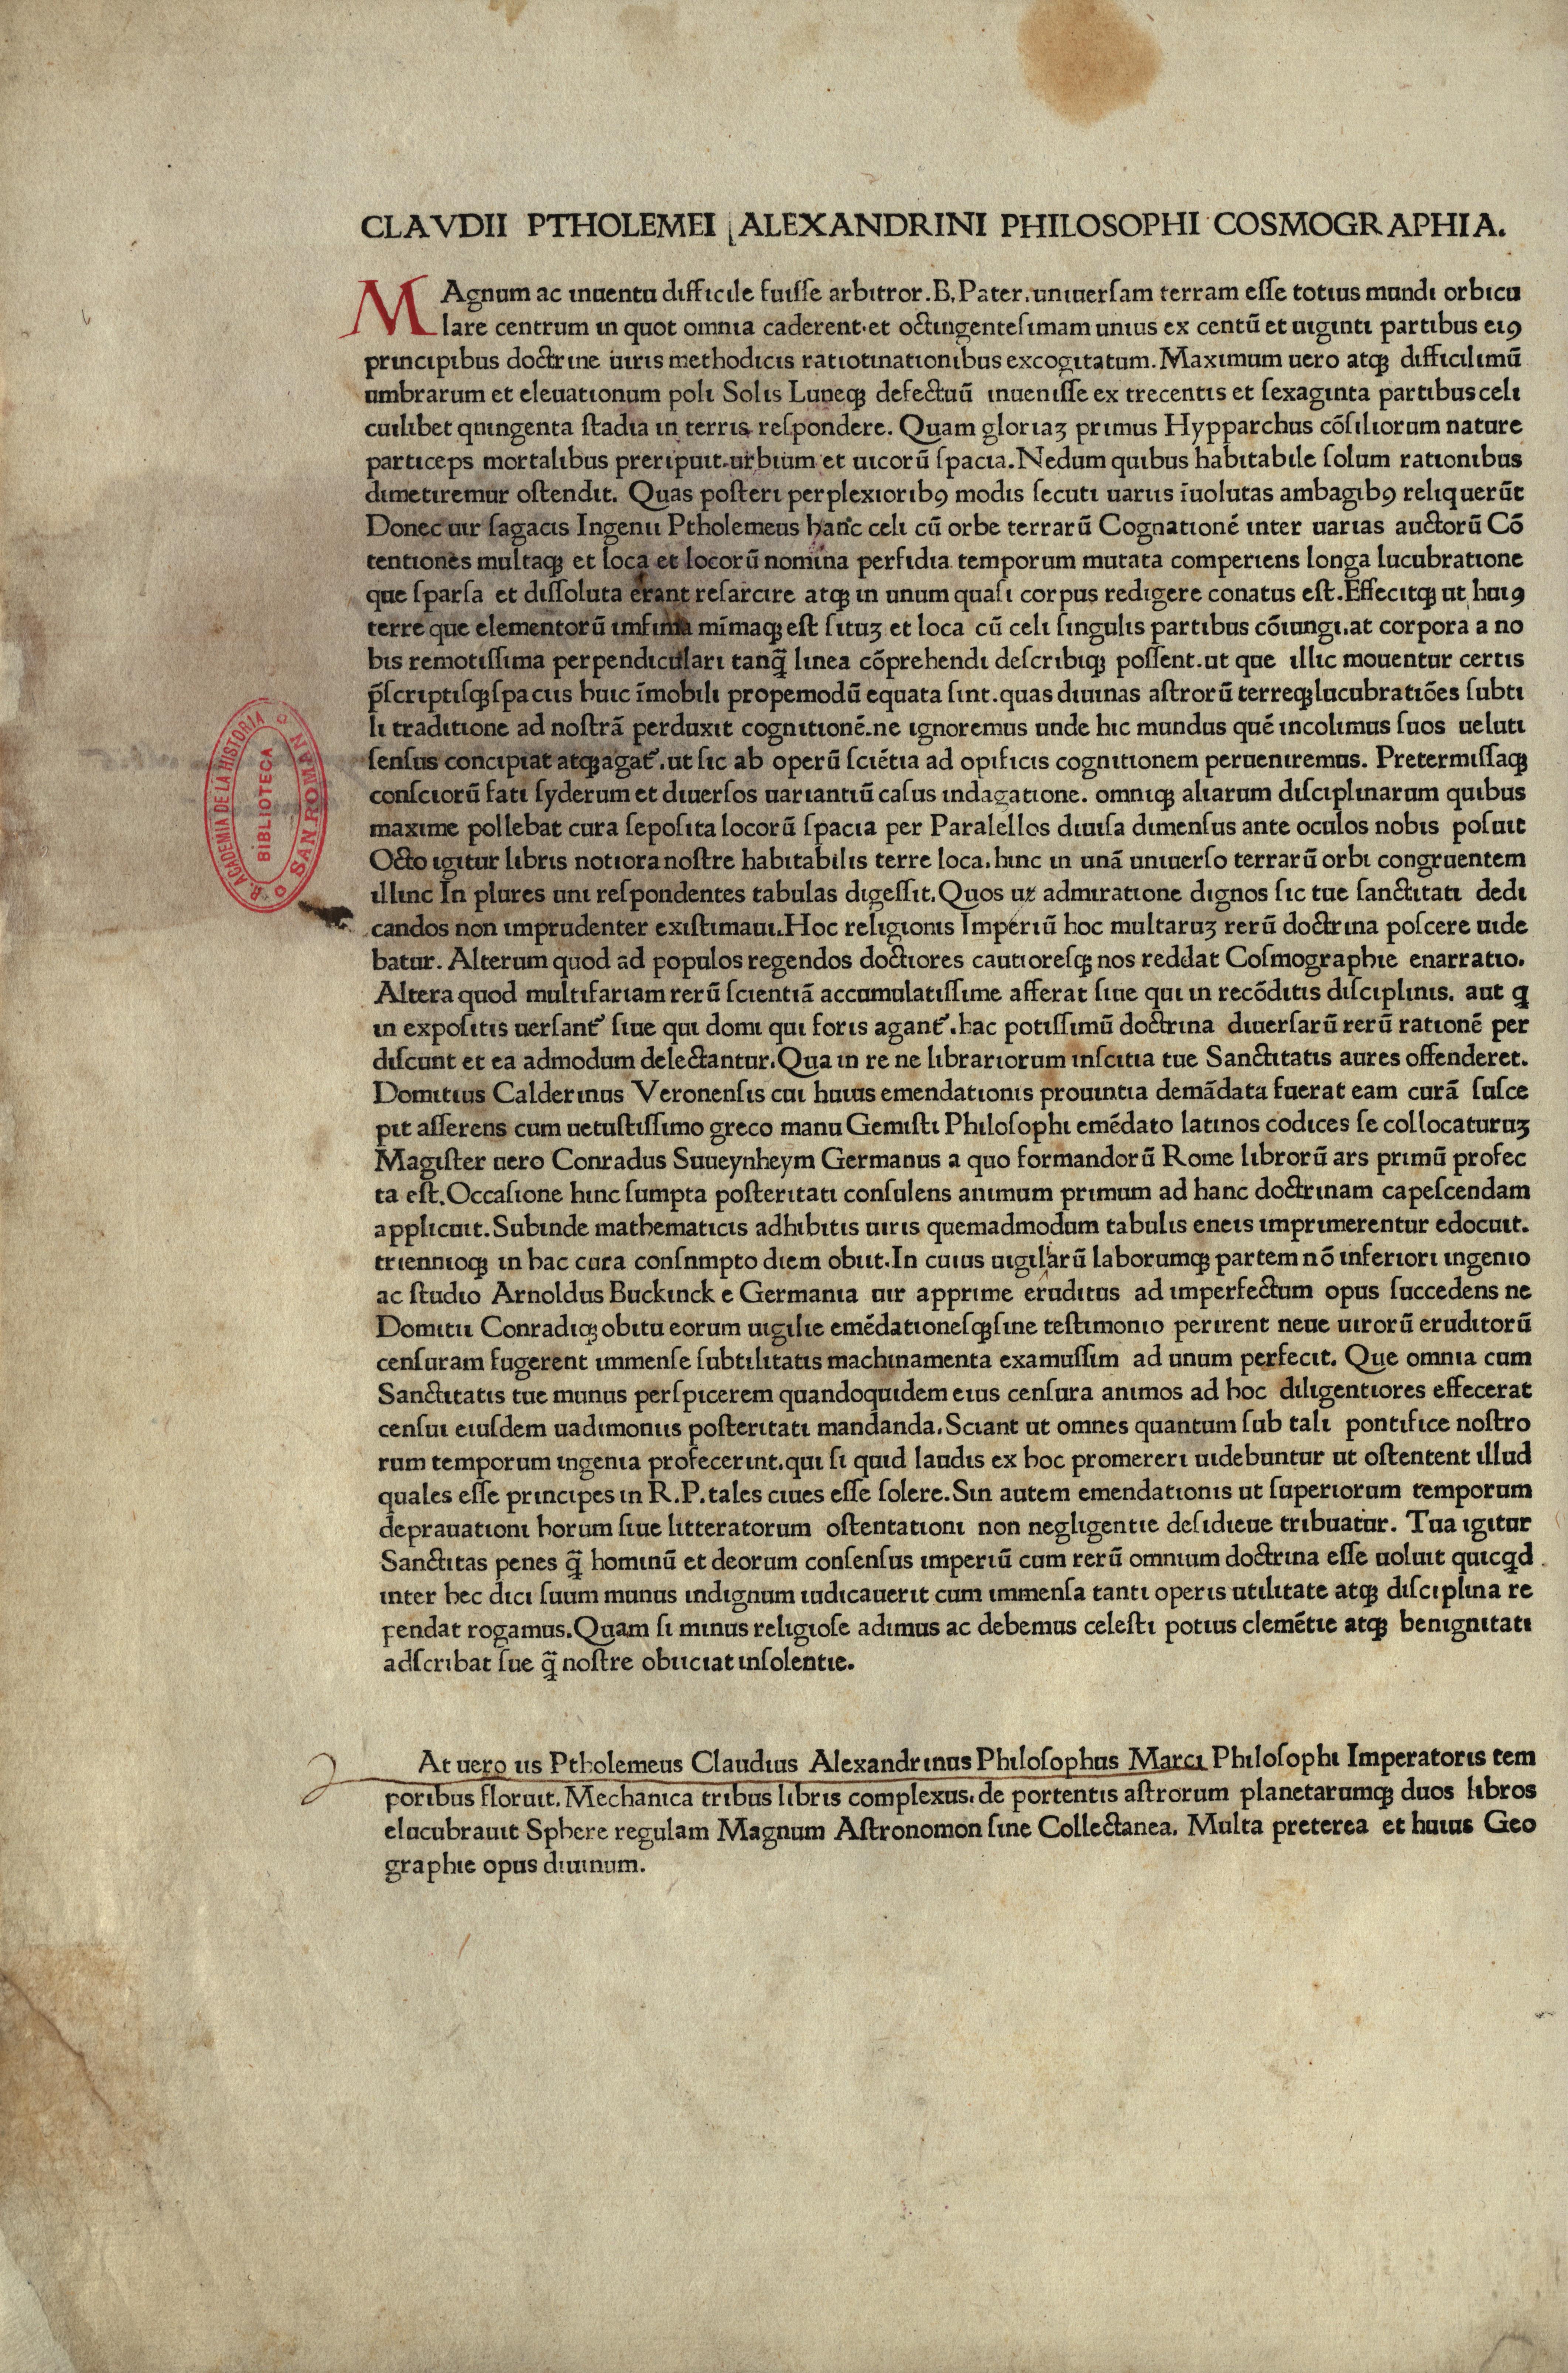 CLAVDII PTHOLEMEI ALEXANDRINI PHILOSOPHI COSMOGRAPHIA.
MAgnum ac inuentu difficile fuisse arbitror.B.Pater.uniuersam terram esse totius mundi orbicu
lare centrum in quot omnia caderent.et octingentesimam unius ex centū et uiginti partibus eiꝯ
principibus doctrine uiris methodicis ratiotinationibus excogitatum.Maximum uero atqꝫ difficilimū
umbrarum et eleuationum poli Solis Luneqꝫ defectuū inuenisse ex trecentis et sexaginta partibus celi
cuilibet quingenta stadia in terris respondere. Quam gloriaꝫ primus Hypparchus cōsiliorum nature
particeps mortalibus preripuit.urbium et uicorū spacia.Nedum quibus habitabile solum rationibus
dimetiremur ostendit. Quas posteri perplexioribꝯ modis secuti uariis īuolutas ambagibꝯ reliquerūt
Donec uir sagacis Ingenii Ptholemeus hanc celi cū orbe terrarū Cognationē inter uarias auctorū Cō
tentiones multaqꝫ et loca et locorū nomina perfidia temporum mutata comperiens longa lucubratione
que sparsa et dissoluta erant resarcire atqꝫ in unum quasi corpus redigere conatus est.Effecitqꝫ ut huiꝯ
terre que elementorū imfima mīmaqꝫ est situꝫ et loca cū celi singulis partibus cōiungi.at corpora a no
bis remotissima perpendiculari tanq̄ linea cōprehendi describiqꝫ possent.ut que illic mouentur certis
p̄scriptisqꝫ spaciis huic īmobili propemodū equata sint.quas diuinas astrorū terreqꝫ lucubratiōes subti
li traditione ad nostrā perduxit cognitionē.ne ignoremus unde hic mundus quē incolimus suos ueluti
sensus concipiat atqꝫ agat᷑.ut sic ab operū sciētia ad opificis cognitionem perueniremus. Pretermissaqꝫ
consciorū fati syderum et diuersos uariantiū casus indagatione. omniqꝫ aliarum disciplinarum quibus
maxime pollebat cura seposita locorū spacia per Paralellos diuisa dimensus ante oculos nobis posuit
Octo igitur libris notiora nostre habitabilis terre loca.hinc in unā uniuerso terrarū orbi congruentem
illinc In plures uni respondentes tabulas digessit.Quos ut admiratione dignos sic tue sanctitati dedi
candos non imprudenter existimaui.Hoc religionis Imperiū hoc multaruꝫ rerū doctrina poscere uide
batur. Alterum quod ad populos regendos doctiores cautioresqꝫ nos reddat Cosmographie enarratio.
Altera quod multifariam rerū scientiā accumulatissime afferat siue qui in recōditis disciplinis. aut q
in expositis uersant᷑ siue qui domi qui foris agant᷑.hac potissimū doctrina diuersarū rerū rationē per
discunt et ea admodum delectantur.Qua in re ne librariorum inscitia tue Sanctitatis aures offenderet.
Domitius Calderinus Veronensis cui huius emendationis prouintia demādata fuerat eam curā susce
pit asserens cum uetustissimo greco manu Gemisti Philosophi emēdato latinos codices se collocaturuꝫ
Magister uero Conradus Suueynheym Germanus a quo formandorū Rome librorū ars primū profec
ta est.Occasione hinc sumpta posteritati consulens animum primum ad hanc doctrinam capescendam
applicuit.Subinde mathematicis adhibitis uiris quemadmodum tabulis eneis imprimerentur edocuit.
triennioqꝫ in hac cura consumpto diem obiit.In cuius uigiliarū laborumqꝫ partem nō inferiori ingenio
ac studio Arnoldus Buckinck e Germania uir apprime eruditus ad imperfectum opus succedens ne
Domitii Conradiqꝫ obitu eorum uigilie emēdationesqꝫ sine testimonio perirent neue uirorū eruditorū
censuram fugerent immense subtilitatis machinamenta examussim ad unum perfecit. Que omnia cum
Sanctitatis tue munus perspicerem quandoquidem eius censura animos ad hoc diligentiores effecerat
censui eiusdem uadimoniis posteritati mandanda.Sciant ut omnes quantum sub tali pontifice nostro
rum temporum ingenia profecerint.qui si quid laudis ex hoc promereri uidebuntur ut ostentent illud
quales esse principes in R.P.tales ciues esse solere.Sin autem emendationis ut superiorum temporum
deprauationi horum siue litteratorum ostentationi non negligentie desidieue tribuatur. Tua igitur
Sanctitas penes q̄ hominū et deorum consensus imperiū cum rerū omnium doctrina esse uoluit quicqd
inter hec dici suum munus indignum iudicauerit cum immensa tanti operis utilitate atqꝫ disciplina re
pendat rogamus.Quam si minus religiose adimus ac debemus celesti potius clemētie atqꝫ benignitati
adscribat sue q̄ nostre obiiciat insolentie.
At uero iis Ptholemeus Claudius Alexandrinus Philosophus Marci Philosophi Imperatoris tem
poribus floruit.Mechanica tribus libris complexus.de portentis astrorum planetarumqꝫ duos libros
elucubrauit Sphere regulam Magnum Astronomon siue Collectanea. Multa preterea et huius Geo
graphie opus diuinum.
R. ACADEMIA DE LA HISTORIA
BIBLIOTECA
SAN ROMAN